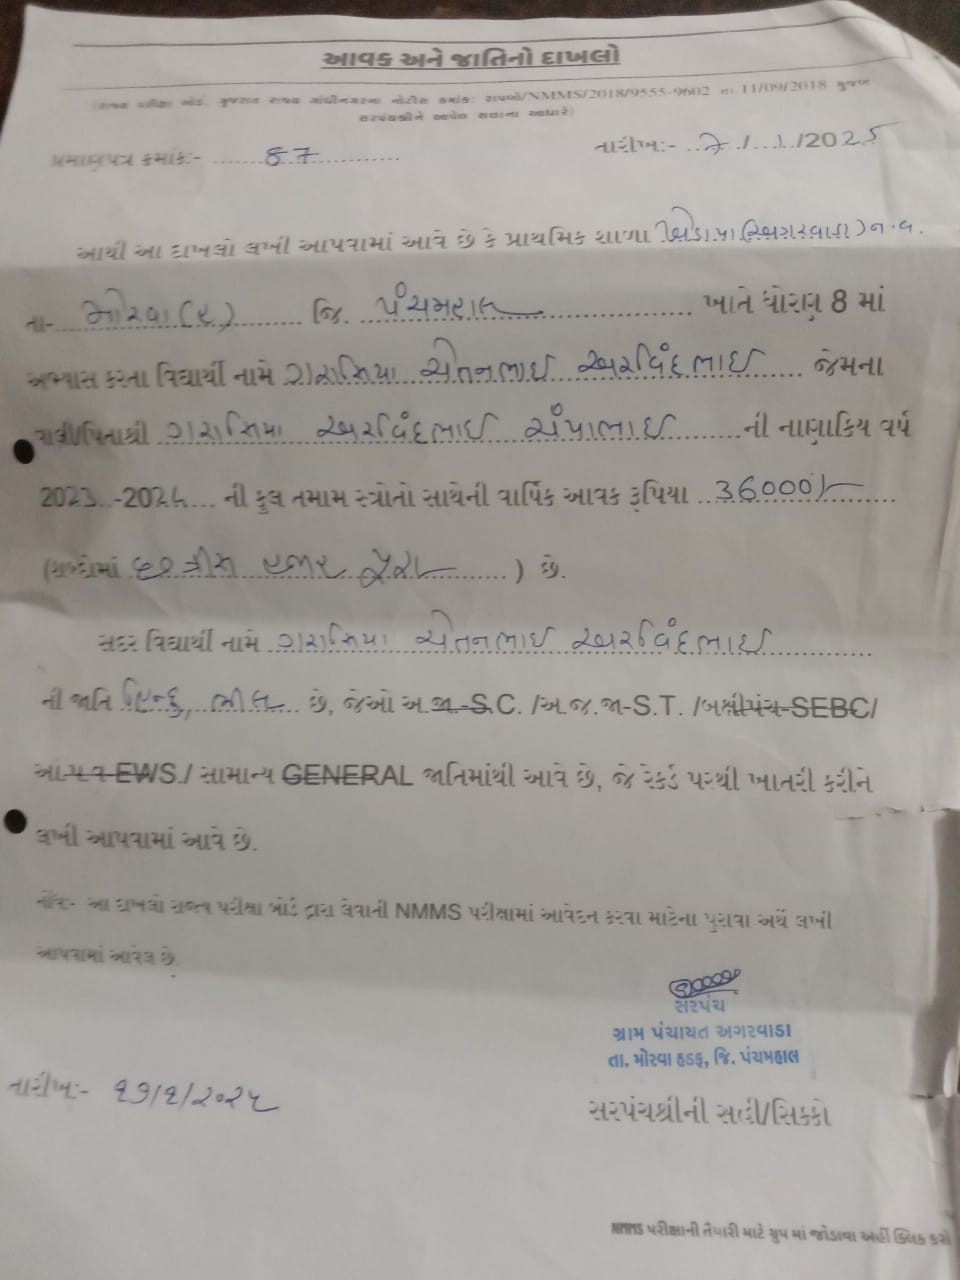 આવક અને જાતિનો દાખલો
(રાજ્ય પરીક્ષા બોર્ડ, ગુજરાત રાજ્ય ગાંધીનગરના નોટીસ ક્રમાંક: રાપબો/NMMS/2018/9555-9602 તા.11/09/2018 મુજબ
સરપંચશ્રીને આપેલ સત્તાના આધારે)
પ્રમાણપત્ર ક્રમાંક:- ......87............ તારીખ:- ..7./...1/2025
આથી આ દાખલો લખી આપવામાં આવે છે કે પ્રાથમિક શાળા (અગરવાડા) ન.વ.
તા-....મોરવા (હ)......... જિ. ..પંચમહાલ.................... ખાતે ધોરણ 8 માં
અભ્યાસ કરતા વિદ્યાર્થી નામે ગરાસિયા ચેતનભાઇ અરવિંદભાઇ...... જેમના
વાલી/પિતાશ્રી ગરાસિયા અરવિંદભાઇ ચંપાભાઇ..........ની નાણાકિય વર્ષ
2023..-2024... ની કુલ તમામ સ્ત્રોતો સાથેની વાર્ષિક આવક રૂપિયા ..36000/-.........
(શબ્દોમાં છત્રીસ હજાર પૂરા............) છે.
સદર વિદ્યાર્થી નામે ગરાસિયા ચેતનભાઇ અરવિંદભાઇ..............
ની જાતિ હિન્દુ, ભીલ.. છે, જેઓ અ.જા-S.C. /અ.જ.જા-S.T. /બક્ષીપંચ-SEBC/
આ.પ.વ-EWS./ સામાન્ય GENERAL જાતિમાંથી આવે છે, જે રેકર્ડ પરથી ખાતરી કરીને
લખી આપવામાં આવે છે.
નોંધ:- આ દાખલો રાજ્ય પરીક્ષા બોર્ડ દ્વારા લેવાની NMMS પરીક્ષામાં આવેદન કરવા માટેના પુરાવા અર્થે લખી
આપવામાં આવેલ છે.
સરપંચ
ગ્રામ પંચાયત અગરવાડા
તા. મોરવા હડફ, જિ. પંચમહાલ
તારીખ:- ૧૭/૧/૨૦૨૫
સરપંચશ્રીની સહી/સિક્કો
NMMS પરીક્ષાની તૈયારી માટે ગ્રુપ માં જોડાવા અહીં ક્લિક કરો